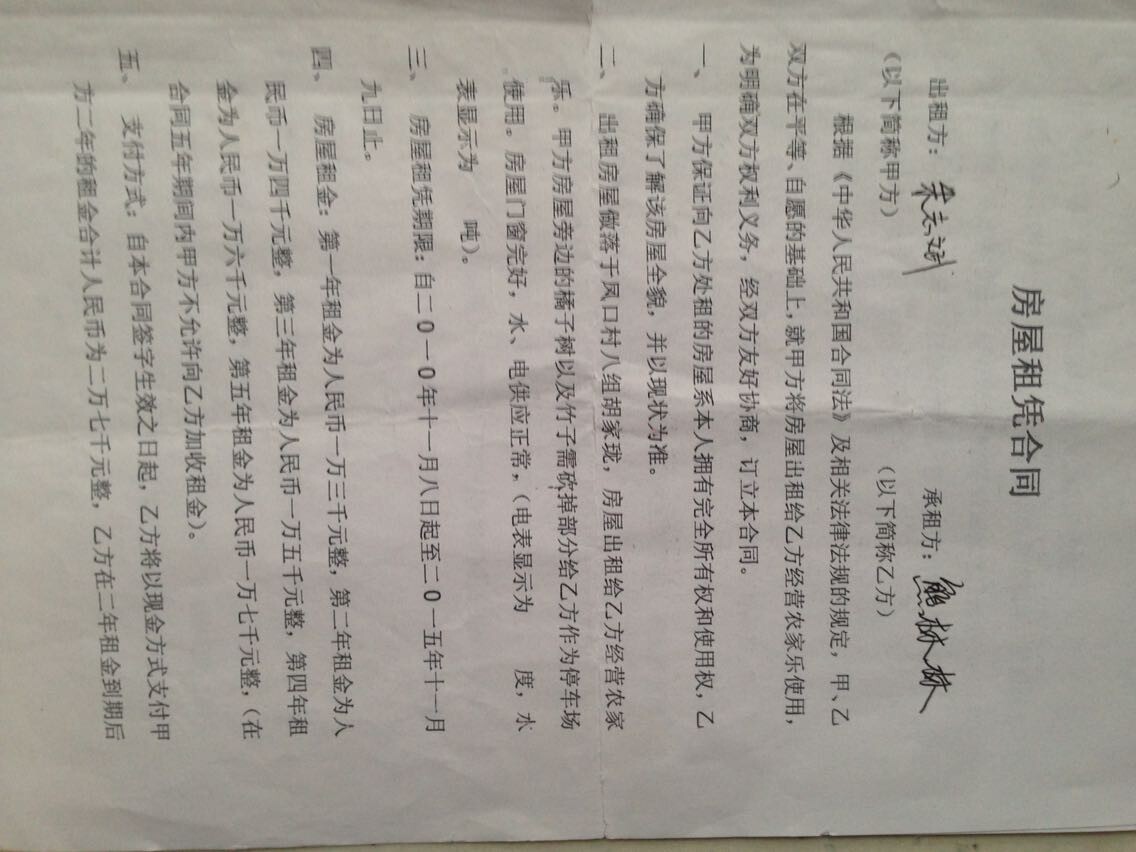 房屋租凭合同
出租方： 承租方：熊林林
（以下简称甲方） （以下简称乙方）
根据《中华人民共和国合同法》及相关法律法规的规定，甲、乙
双方在平等、自愿的基础上，就甲方将房屋出租给乙方经营农家乐使用，
为明确双方权利义务，经双方友好协商，订立本合同。
一、 甲方保证向乙方处租的房屋系本人拥有完全所有权和使用权，乙
方确保了解该房屋全貌，并以现状为准。
二、 出租房屋做落于凤口村八组胡家珑，房屋出租给乙方经营农家
乐。甲方房屋旁边的橘子树以及竹子需砍掉部分给乙方作为停车场
使用。房屋门窗完好，水、电供应正常，（电表显示为 度，水
表显示为 吨）。
三、 房屋租凭期限：自二0一0年十一月八日起至二0一五年十一月
九日止。
四、 房屋租金：第一年租金为人民币一万三千元整，第二年租金为人
民币一万四千元整，第三年租金为人民币一万五千元整，第四年租
金为人民币一万六千元整，第五年租金为人民币一万七千元整，（在
合同五年期间内甲方不允许向乙方加收租金）。
五、 支付方式：自本合同签字生效之日起，乙方将以现金方式支付甲
方二年的租金合计人民币为二万七千元整，乙方在二年租金到期后